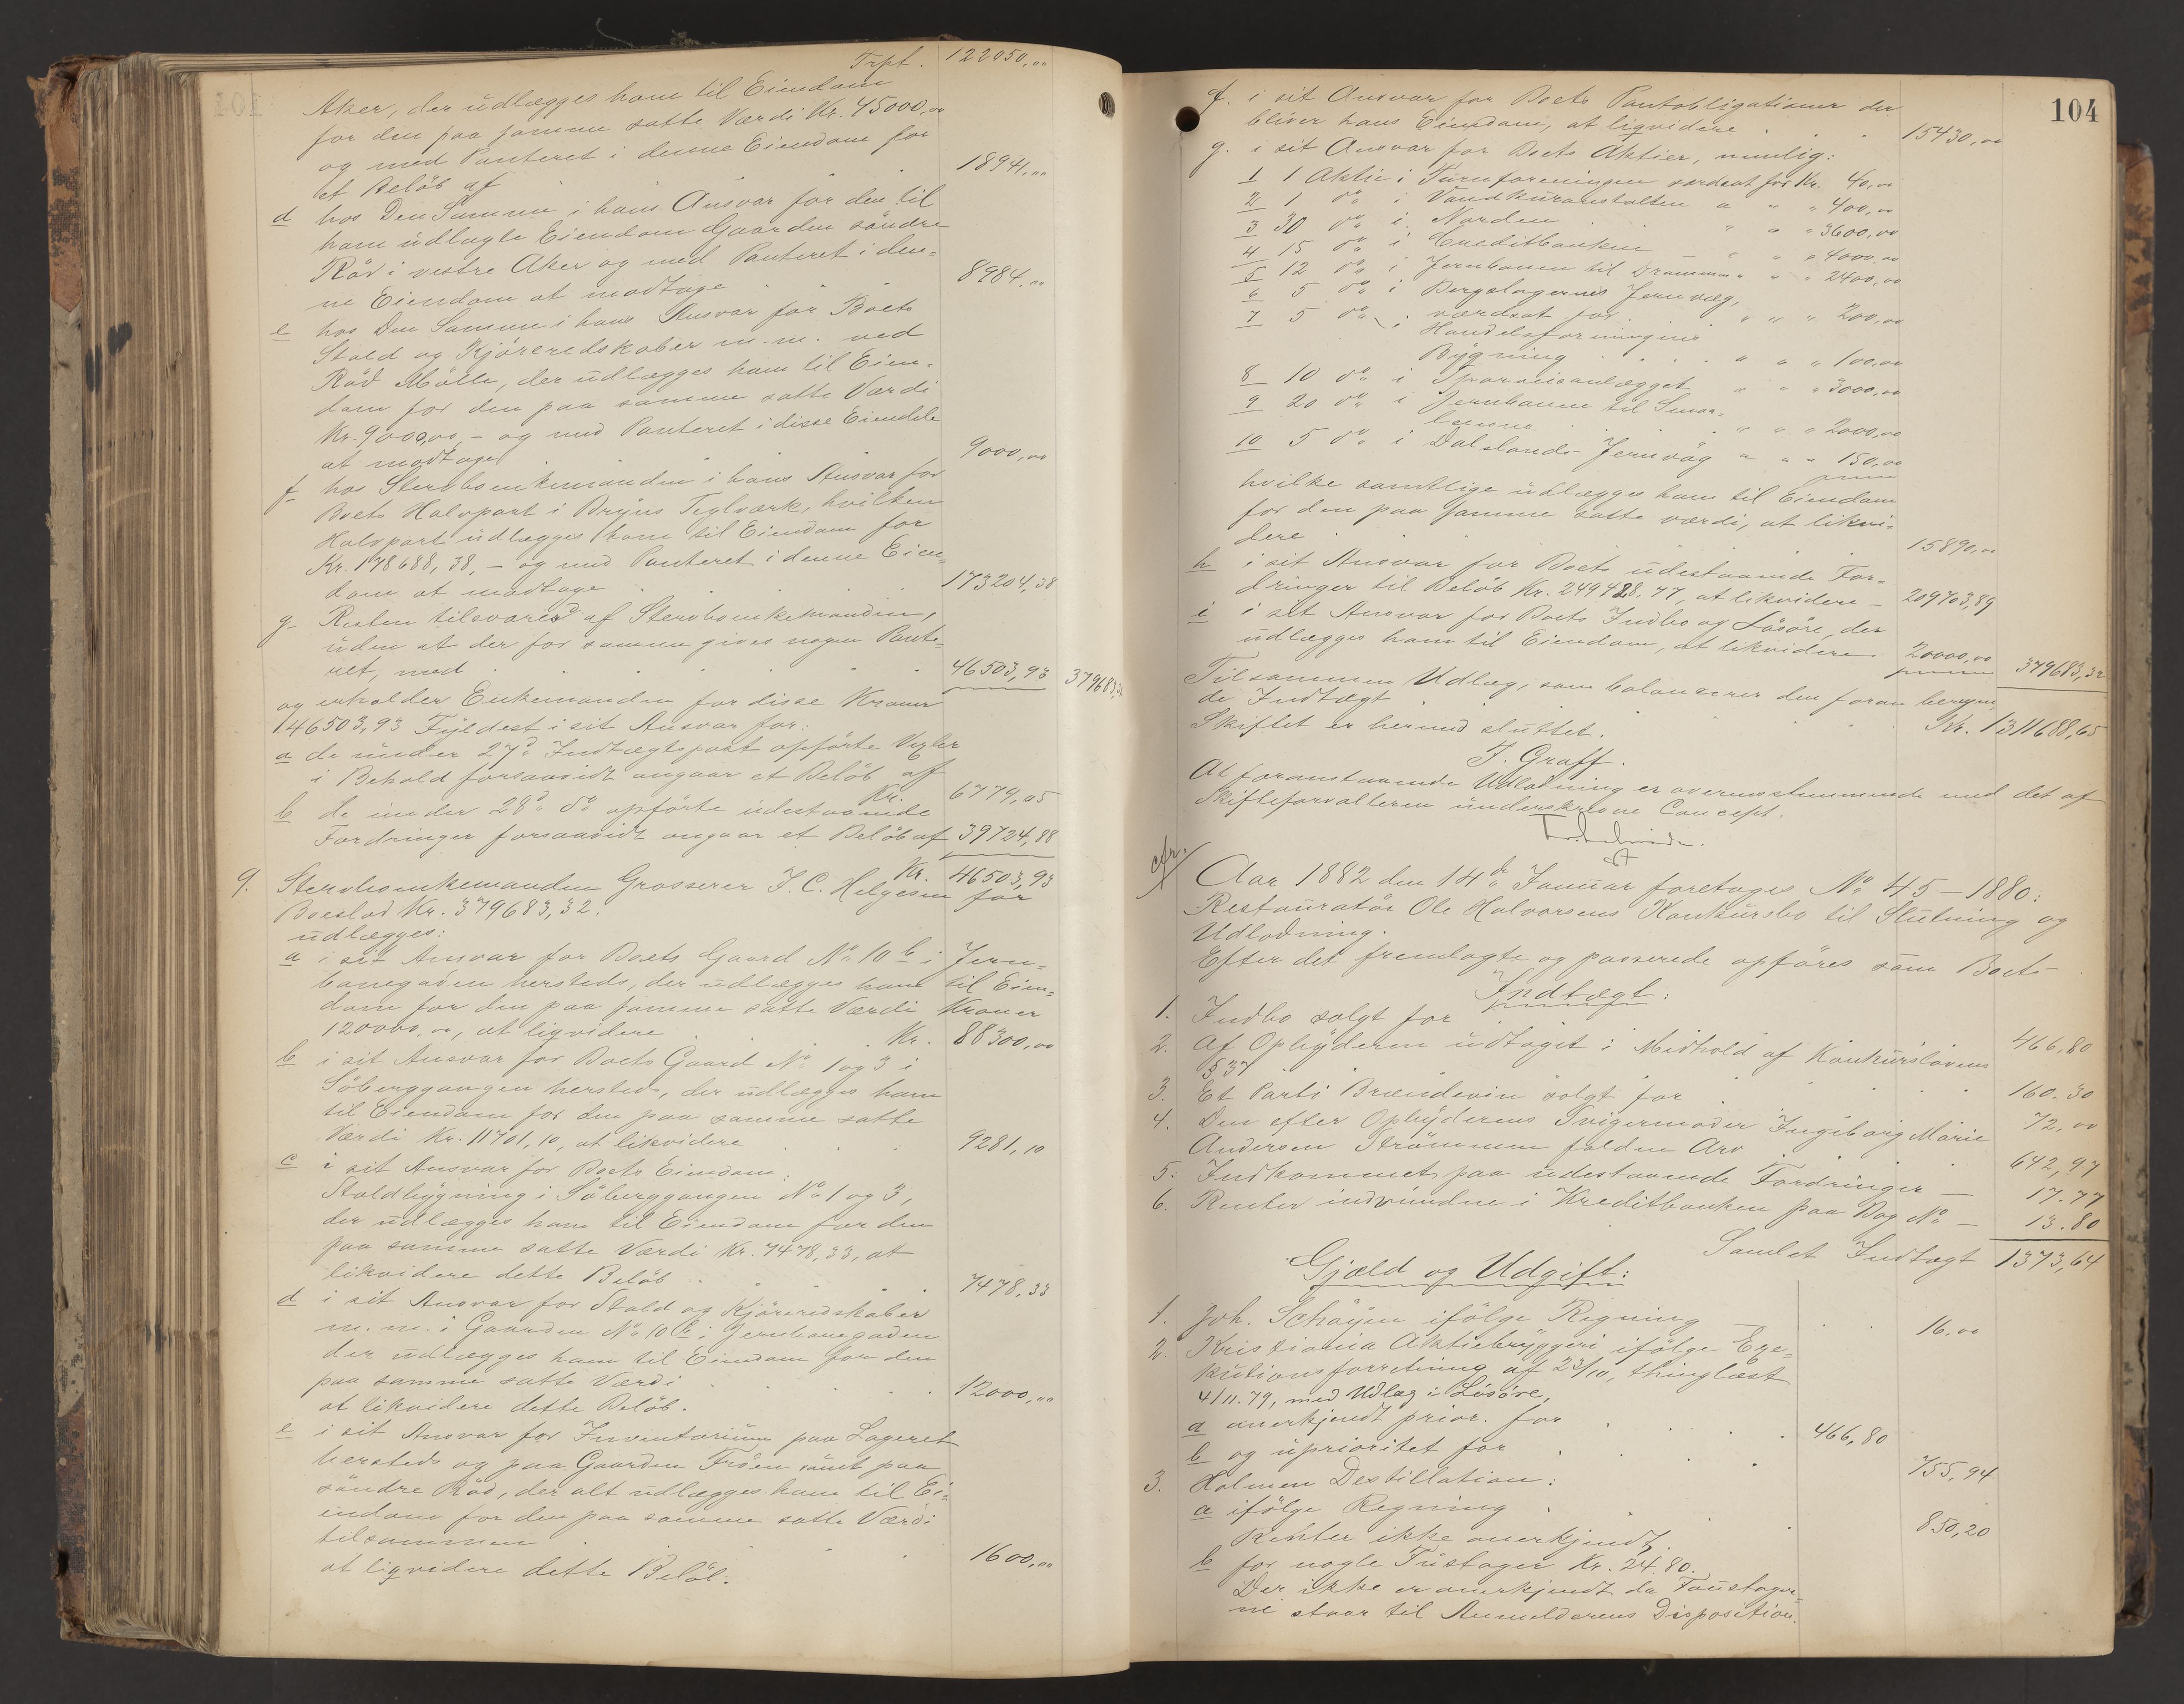 Trpt. 122050,""
Aker, der udlægges ham til Eiendom
for den paa samme satte Værdi Kr. 45000,00
og med Panteret i denne Eiendom for
et Beløb af 18941,""
d hos Den Samme i hans Ansvar for den til
ham udlagte Eiendom Gaarden søndre
Röd i vestre Aker og med Panteret i den=
ne Eiendom at modtage 8984,""
e hos Den Samme i hans Ansvar for Boets
Stald og Kjöreredskaber m.m. ved
Röd Mölle, der udlægges ham til Eien-
dom for den paa samme satte Værdi
Kr. 9000,00,- og med Panteret i disse Eiendele
at modtage 9000,00
f- hos Stervboenkemanden i hans Ansvar for
Boets Halvpart i Bryns Teglværk, hvilken
Halvpart udlægges ham til Eiendom for
Kr. 178688,38,- og med Panteret i denne Eien=
dom at modtage 173204,38
g- Resten tilsvares af Stervboenkemanden,
uden at der for samme gives nogen Pante=
ret, med 46503,93 379683,32
og erholder Enkemanden for disse Kroner
146503,93 Fyldest i sit Ansvar for:
a de under 27d. Indtægtspost opförte Vexler
i Behold forsaavidt angaar et Beløb af
Kr. 6779,05
b de under 28d. do. opförte udestaaende
Fordringer forsaavidt angaar et Beløb af 39724,88
Kr. 46503,93
9. Stervboenkemanden Grosserer J. C. Helgesen for
Boeslod Kr. 379683,32.
udlægges:
a i sit Ansvar for Boets Gaard No 10 b i Jern=
banegaden hersteds, der udlægges ham til Eien=
dom for den paa samme satte Værdi Kroner
120000,00, at liqvidere Kr. 88300,00
b i sit Ansvar for Boets Gaard No 1 og 3 i
Söberggangen hersteds, der udlægges ham
til Eiendom for den paa samme satte
Værdi Kr. 11701,10, at likvidere 9281,10
c i sit Ansvar for Boets Eiendom:
Staldbygning i Söberggangen No 1 og 3,
der udlægges ham til Eiendom for den
paa samme satte Værdi Kr. 7478,33, at
likvidere dette Beløb 7478,33
d i sit Ansvar for Stald og Kjöreredskaber
m.m. i Gaarden No 10 b i Jernbanegaden
der udlægges ham til Eiendom for den
paa samme satte Værdi 12000,""
at likvidere dette Beløb.
e i sit Ansvar for Inventarium paa Lageret
hersteds og paa Gaarden Fröen samt paa
söndre Röd, der alt udlægges ham til Ei=
endom for den paa samme satte Værdi
tilsammen 1600,""
at liqvidere dette Beløb.
104
f. i sit Ansvar for Boets Pantobligationer der
bliver hans Eiendom, at liqvidere 15430,00
g. i sit Ansvar for Boets Aktier, nemlig:
1 1 Aktie i Turnforeningen værdsat for Kr. 40,00
2 1 do. i Vandkuranstalten " " " 400,00
3 30 do. i Norden " " " 3600,00
4 15 do. i Creditbanken " " " 4000,00
5 12 do. i Jernbanen til Drammen " " " 2400,00
6 5 do. i Bergslagernes Jernvæg,
værdsat for " " " 200,00
7 5 do. i Handelsforeningens
Bygning " " " 100,00
8 10 do. i Sparveisanlægget " " " 3000,00
9 20 do. i Jernbanen til Smaa-
lenene " " " 2000,00
10 5 do. i Dalslands Jernväg " " " 150,00
hvilke samtlige udlægges ham til Eiendom
for den paa samme satte værdi, at likvi=
dere 15890,00
h i sit Ansvar for Boets udestaaende For=
dringer til Beløb Kr. 249428,77, at likvidere - 209703,89
i i sit Ansvar for Boets Indbo og Lösöre, der
udlægges ham til Eiendom, at likvidere 20000,00 379683,32
Tilsammen Udlæg, som balancerer den foran beregne=
de Indtægt Kr. 1311688,65
Skiftet er hermed sluttet.
J. Graff.
At foranstaaende Udlodning er overensstemmende med det af
Skifteforvalteren underskrevne Concept.
cfr.
Aar 1882 den 14de Januar foretoges No 45 - 1880:
Restauratör Ole Halvorsens Konkursbo til Slutning og
Udlodning.
Efter det fremlagte og passerede opföres som Boets
Indtægt:
1. Indbo solgt for 466,80
2. Af Opbyderen udtaget i Medhold af Konkurslovens
§ 37 160.30
3. Et Parti Brændevin solgt for 72,00
4. Den efter Opbyderens Svigermoder Ingeborg Marie
Andersen Strömmen faldne Arv 642,97
5. Indkommet paa udestaaende Fordringer - 17.77
6. Renter indvundne i Kreditbanken paa Bog No - 13.80
Samlet Indtægt 1373,64
Gjæld og Udgift:
1. Joh. Schøyen ifölge Regning 16,00
2. Kristiania Aktiebryggeri ifölge Exe=
kutionsforretning af 23/10, thinglæst
4/11.79, med Udlæg i Lösöre,
a anerkjendt prior. for 466,80
b og uprioritet for 755,94
3. Holmen Destillation:
a ifölge Regning 850,20
Renter ikke anerkjendt.
b for nogle Fustager Kr. 24.80.
Der ikke er anerkjendt da Foustager=
ne staar til Anmelderens Disposition.